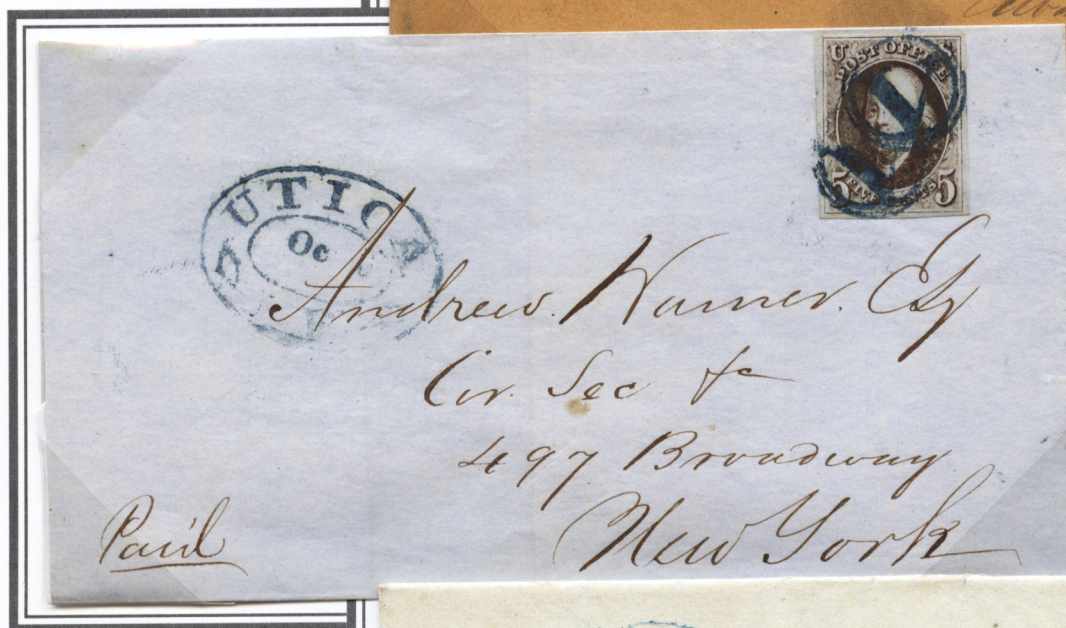 U S
POST OFFICE
5 FIVE CENTS 5
UTICA
Oc
Andrew. Warner. Esq
Cor. Sec &c
497 Broadway
New York
Paid